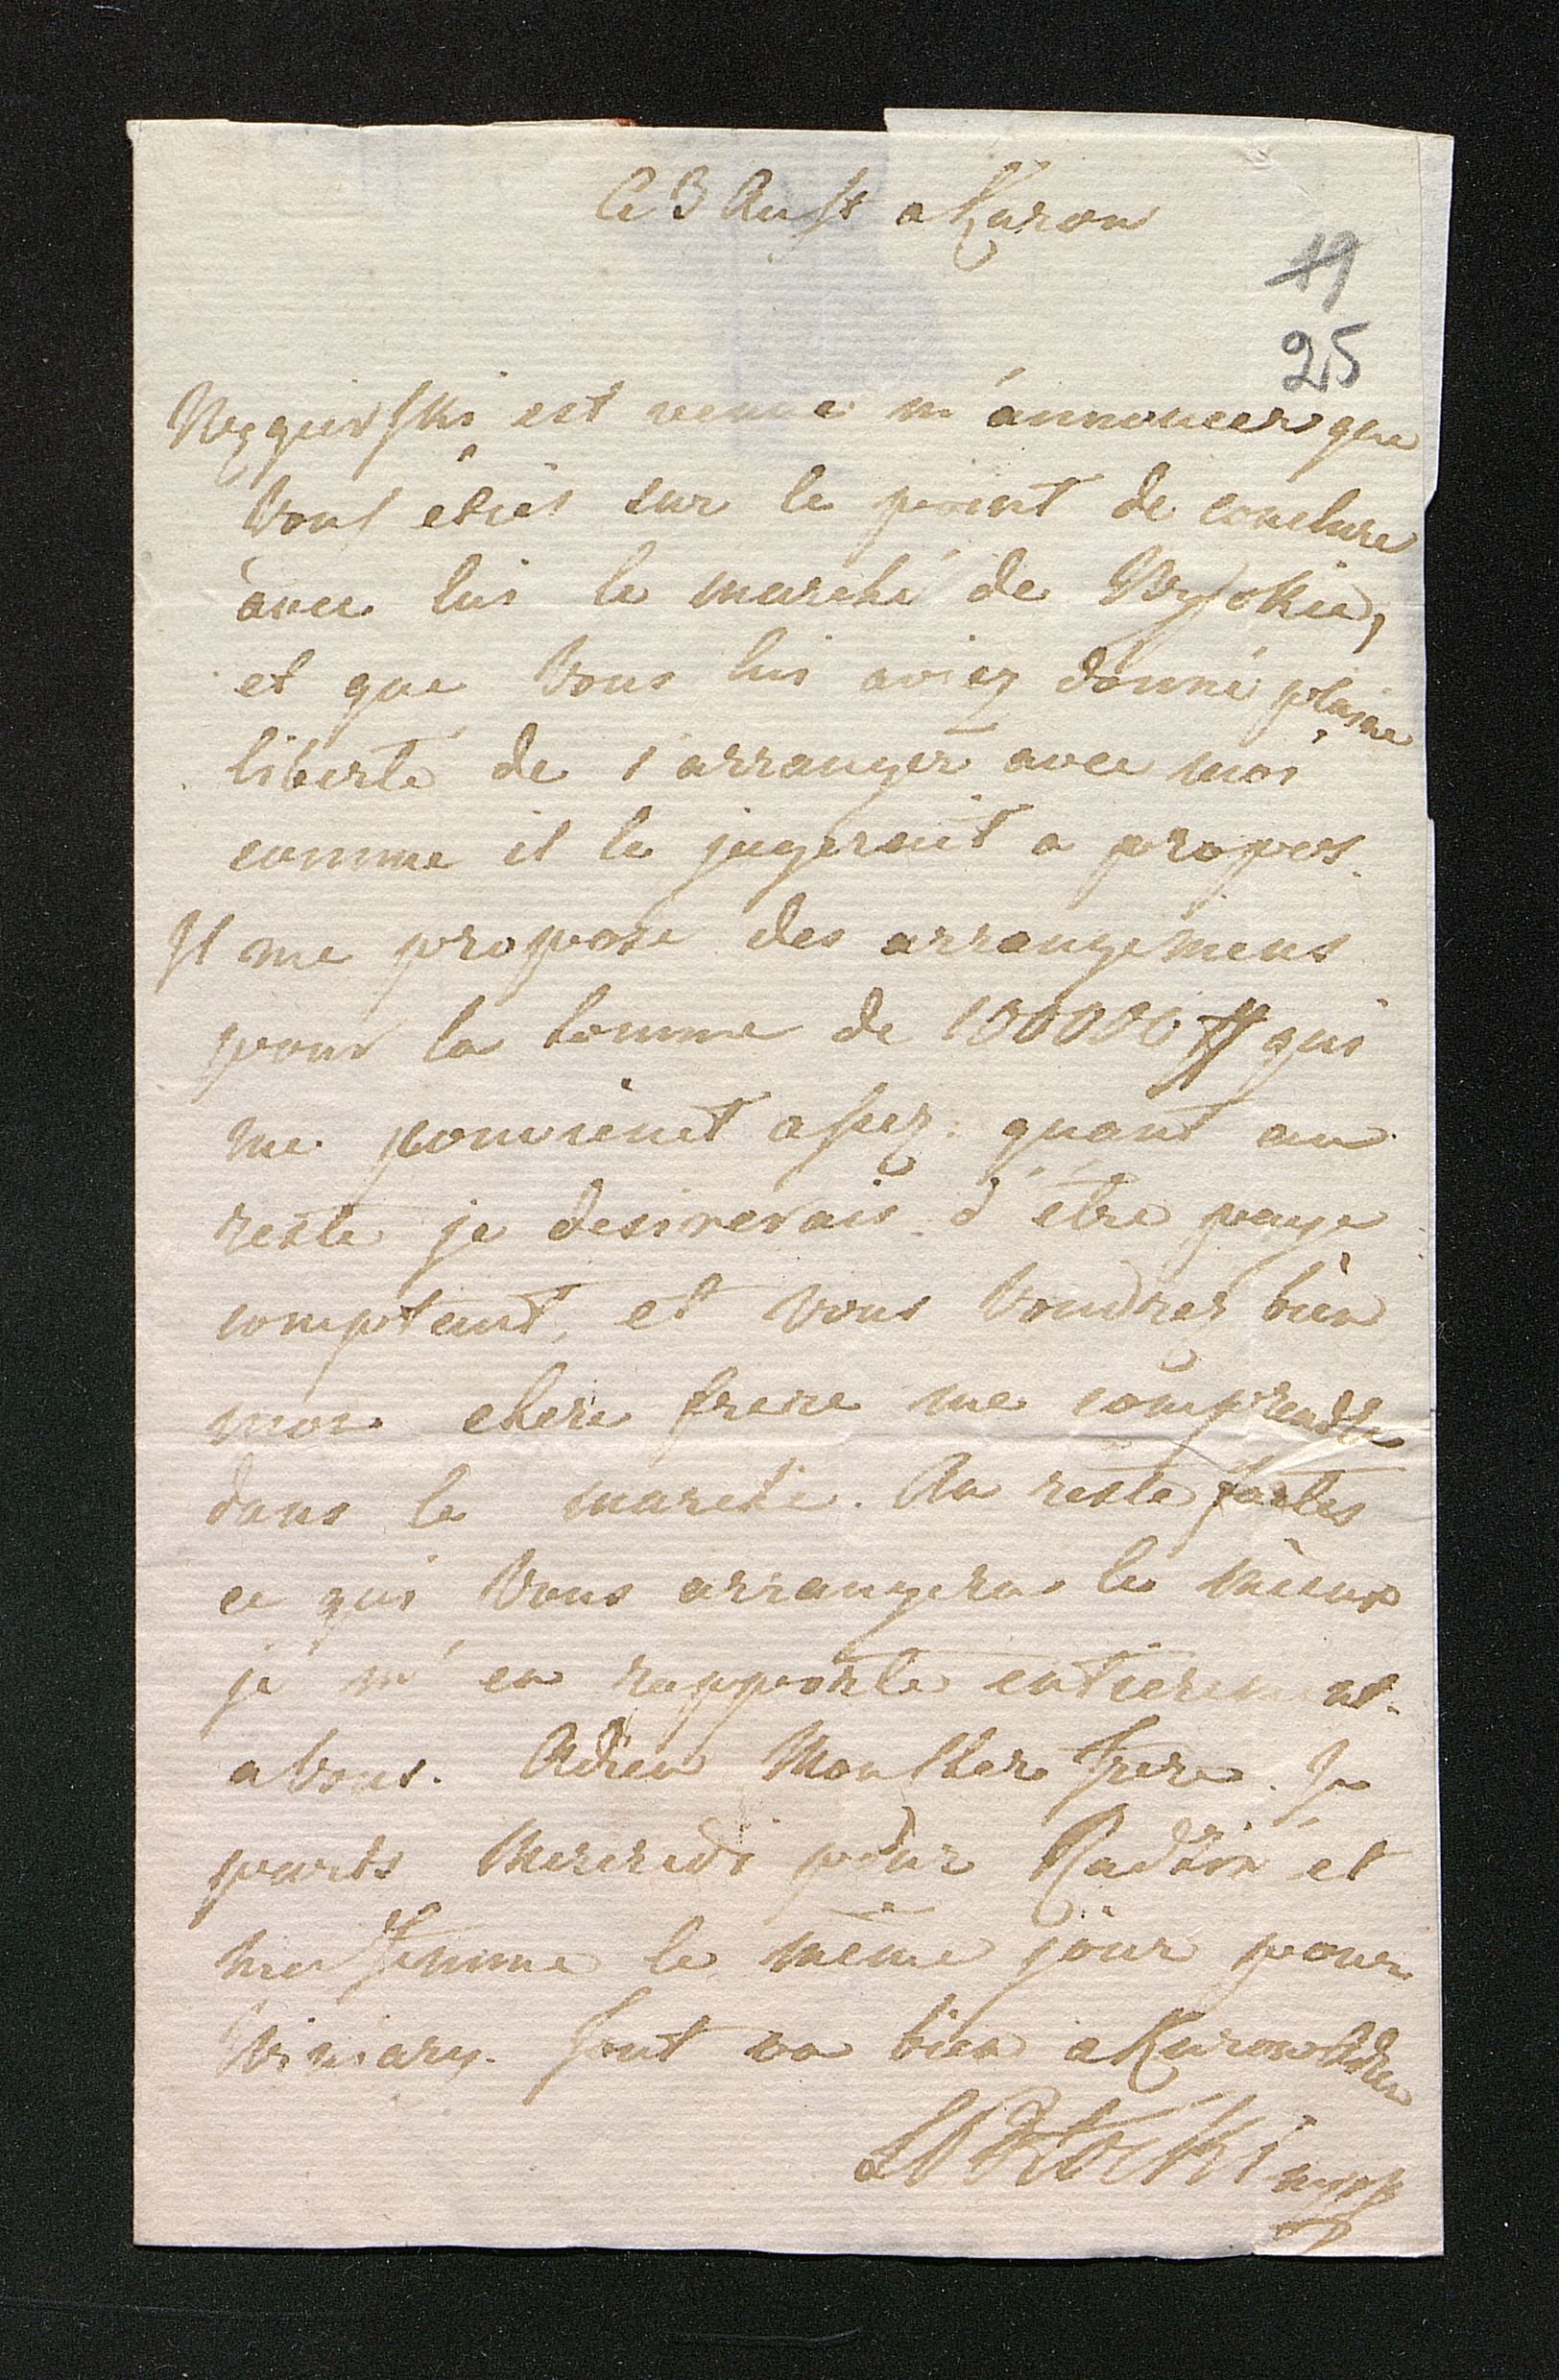 Ce 3 Aust a Kurow
19
25
est venue m'annoncer que
Vous étiés sur le point de conclure
avec lui le marché de Wysokie,
et que Vous lui aviez donné plaine
liberte de s'arranger avec moi
comme il le jugerait a propos.
Il me propose des arrangemens
pour la somme de 100000 # qui
me convienent assez. quant au
reste je desirerais d'étre paye
comptent, et vous Voudrez bien
mon chere frere me comprendre
dans le marché. Au reste faites
ce qui Vous arrangera le mieux
je m'en rapporte entierement
a Vous. Adieu Mon Cher frere. Je
parts Mercredi pour Radzin et
ma femme le même jour pour
Winiary. Tout va bien a Kurow Adieu
Potocki mpp